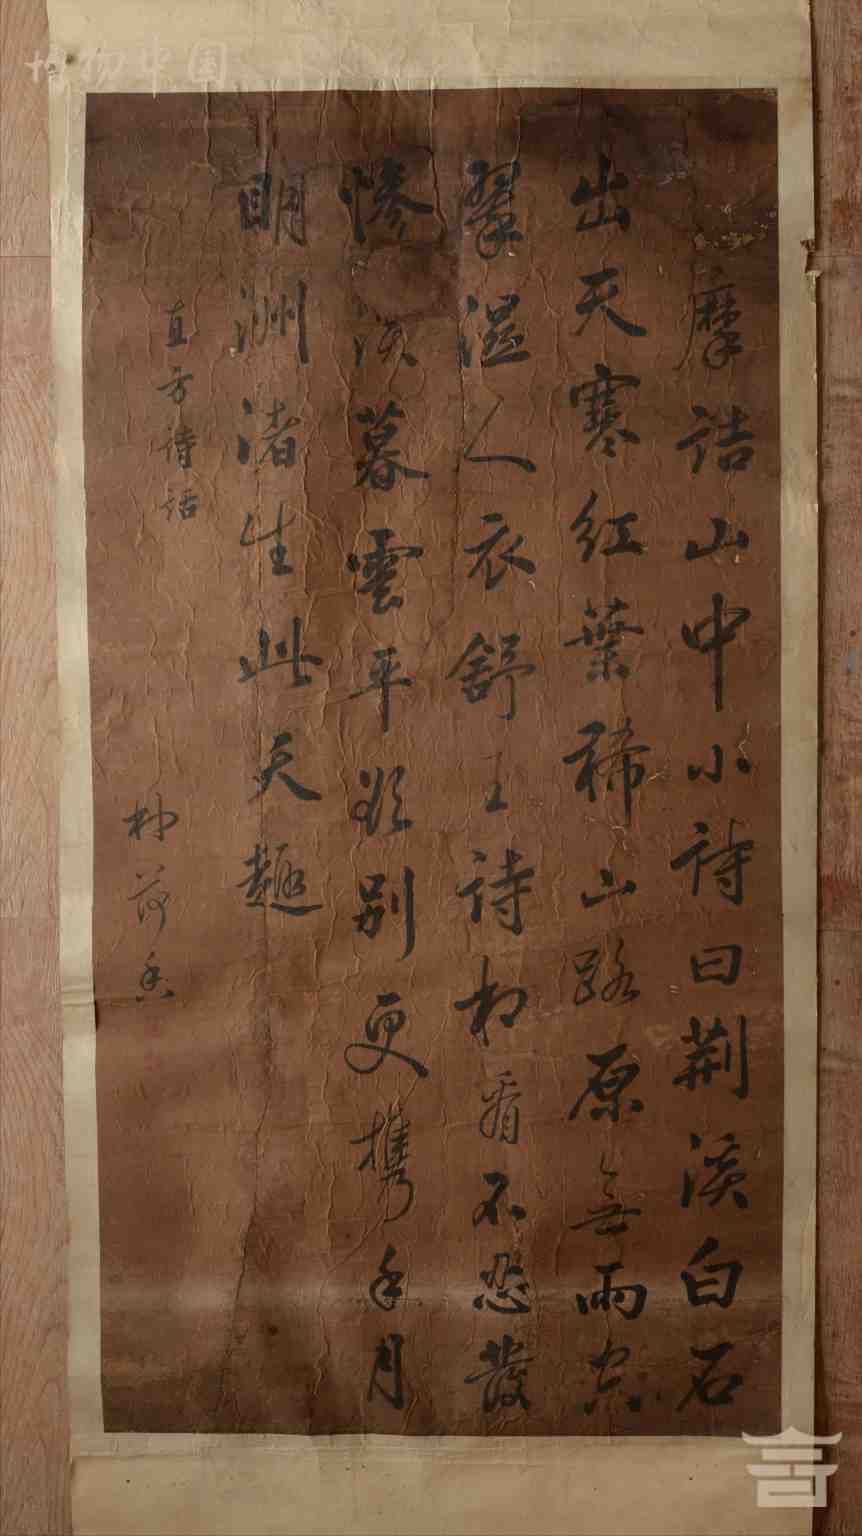 博物中国
摩詰山中小詩曰荆溪白石
出天寒紅葉稀山路原無雨空
翠濕人衣舒王詩相看不忍發
慘淡暮雲平欲别更携手月
明洲渚生此天趣
直方詩話